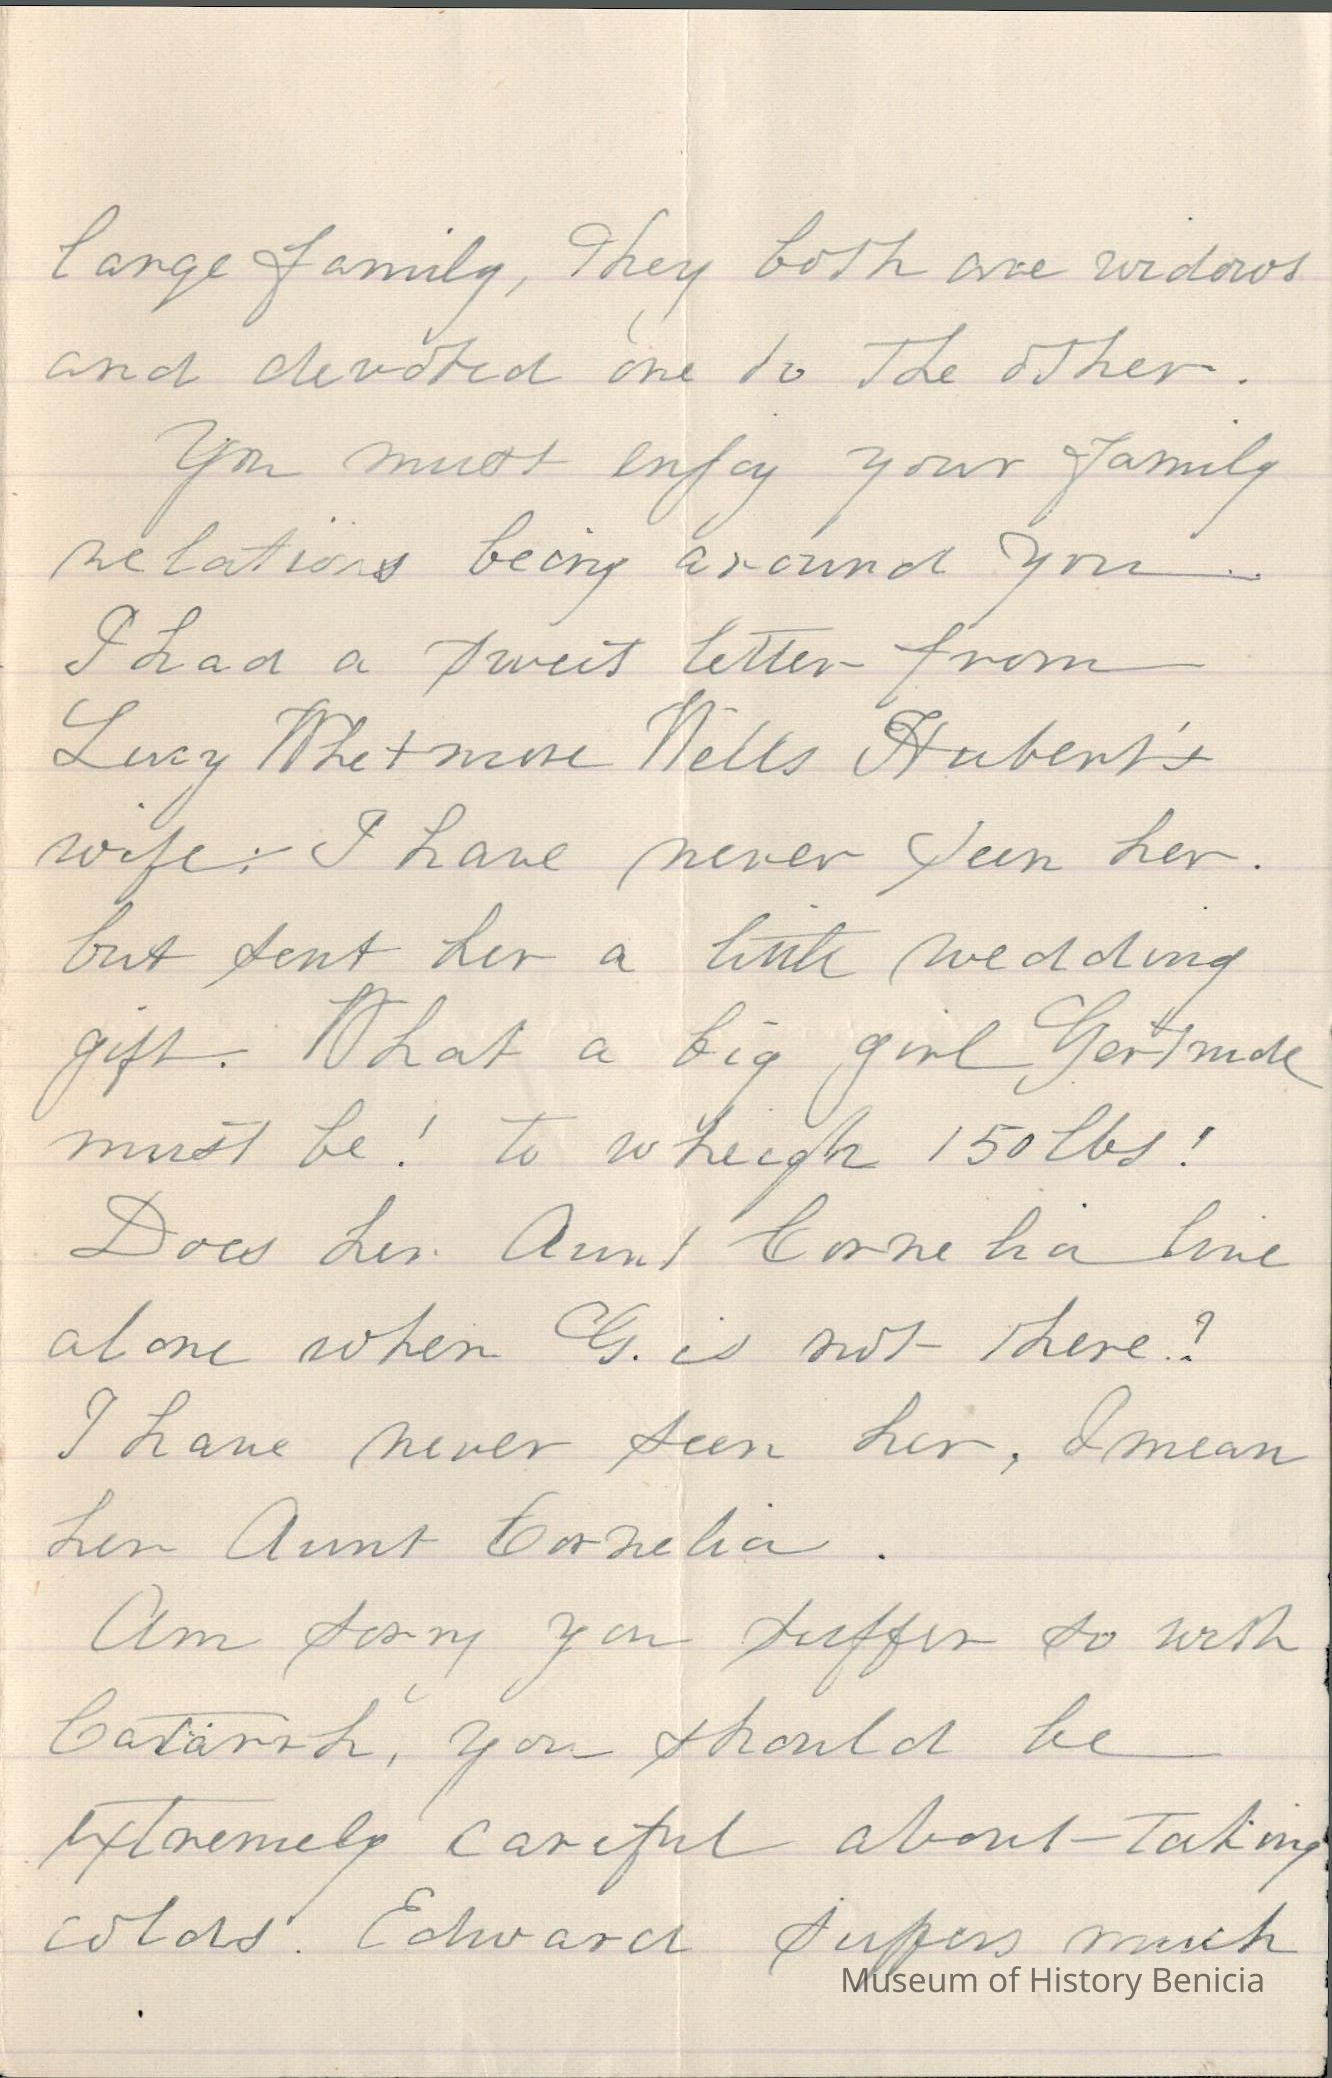 large family, They both are widows
and devoted one to the other.
You must enjoy your family
relations being around you.
I had a sweet letter from
Lucy Whetmore Wells Hubert's
wife. I have never seen her.
but sent her a little wedding
gift. What a big girl Gertrude
must be! to wheigh 150 lbs!
Does her Aunt Cornelia live
alone when G. is not there?
I have never seen her, I mean
her Aunt Cornelia.
Am sorry you suffer so with
Catarrh, you should be
extremely careful about taking
colds. Edward suffers much
Museum of History Benicia